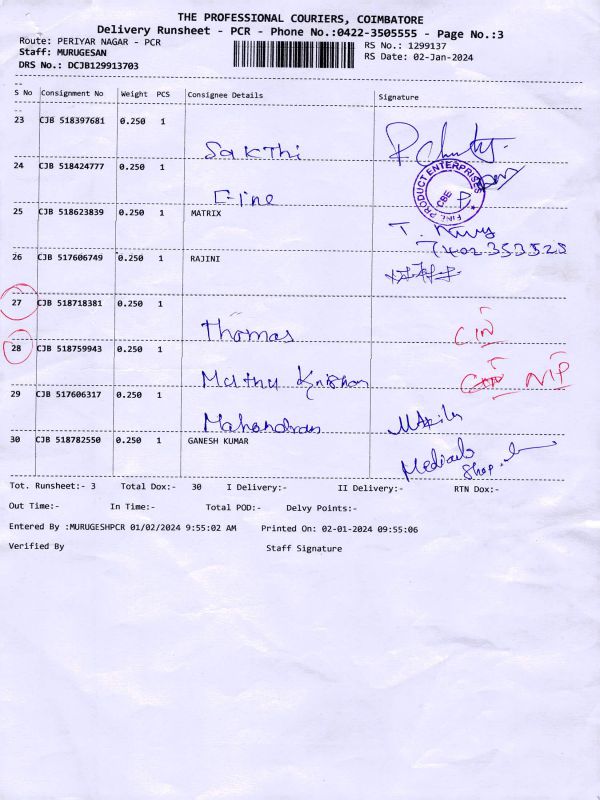 THE PROFESSIONAL COURIERS, COIMBATORE
Delivery Runsheet - PCR - Phone No.:0422-3505555 - Page No.:3
Route: PERIYAR NAGAR - PCR
RS No.: 1299137
Staff: MURUGESAN
RS Date: 02-Jan-2024
DRS No.: DCJB129913703
S No Consignment No Weight PCS Consignee Details Signature
23 CJB 518397681 0.250 1
Sakthi
24 CJB 518424777 0.250 1
FINE PRODUCT ENTERPRISES CBE
Fine
25 CJB 518623839 0.250 1 MATRIX
7402353525
26 CJB 517606749 0.250 1 RAJINI
27 CJB 518718381 0.250 1
Thomas
28 CJB 518759943 0.250 1
Muthu Krishnan
29 CJB 517606317 0.250 1
Mahendran
30 CJB 518782550 0.250 1 GANESH KUMAR
Medicals Shop
Tot. Runsheet:- 3 Total Dox:- 30 I Delivery:- II Delivery:- RTN Dox:-
Out Time:- In Time:- Total POD:- Delvy Points:-
Entered By :MURUGESHPCR 01/02/2024 9:55:02 AM Printed On: 02-01-2024 09:55:06
Verified By Staff Signature